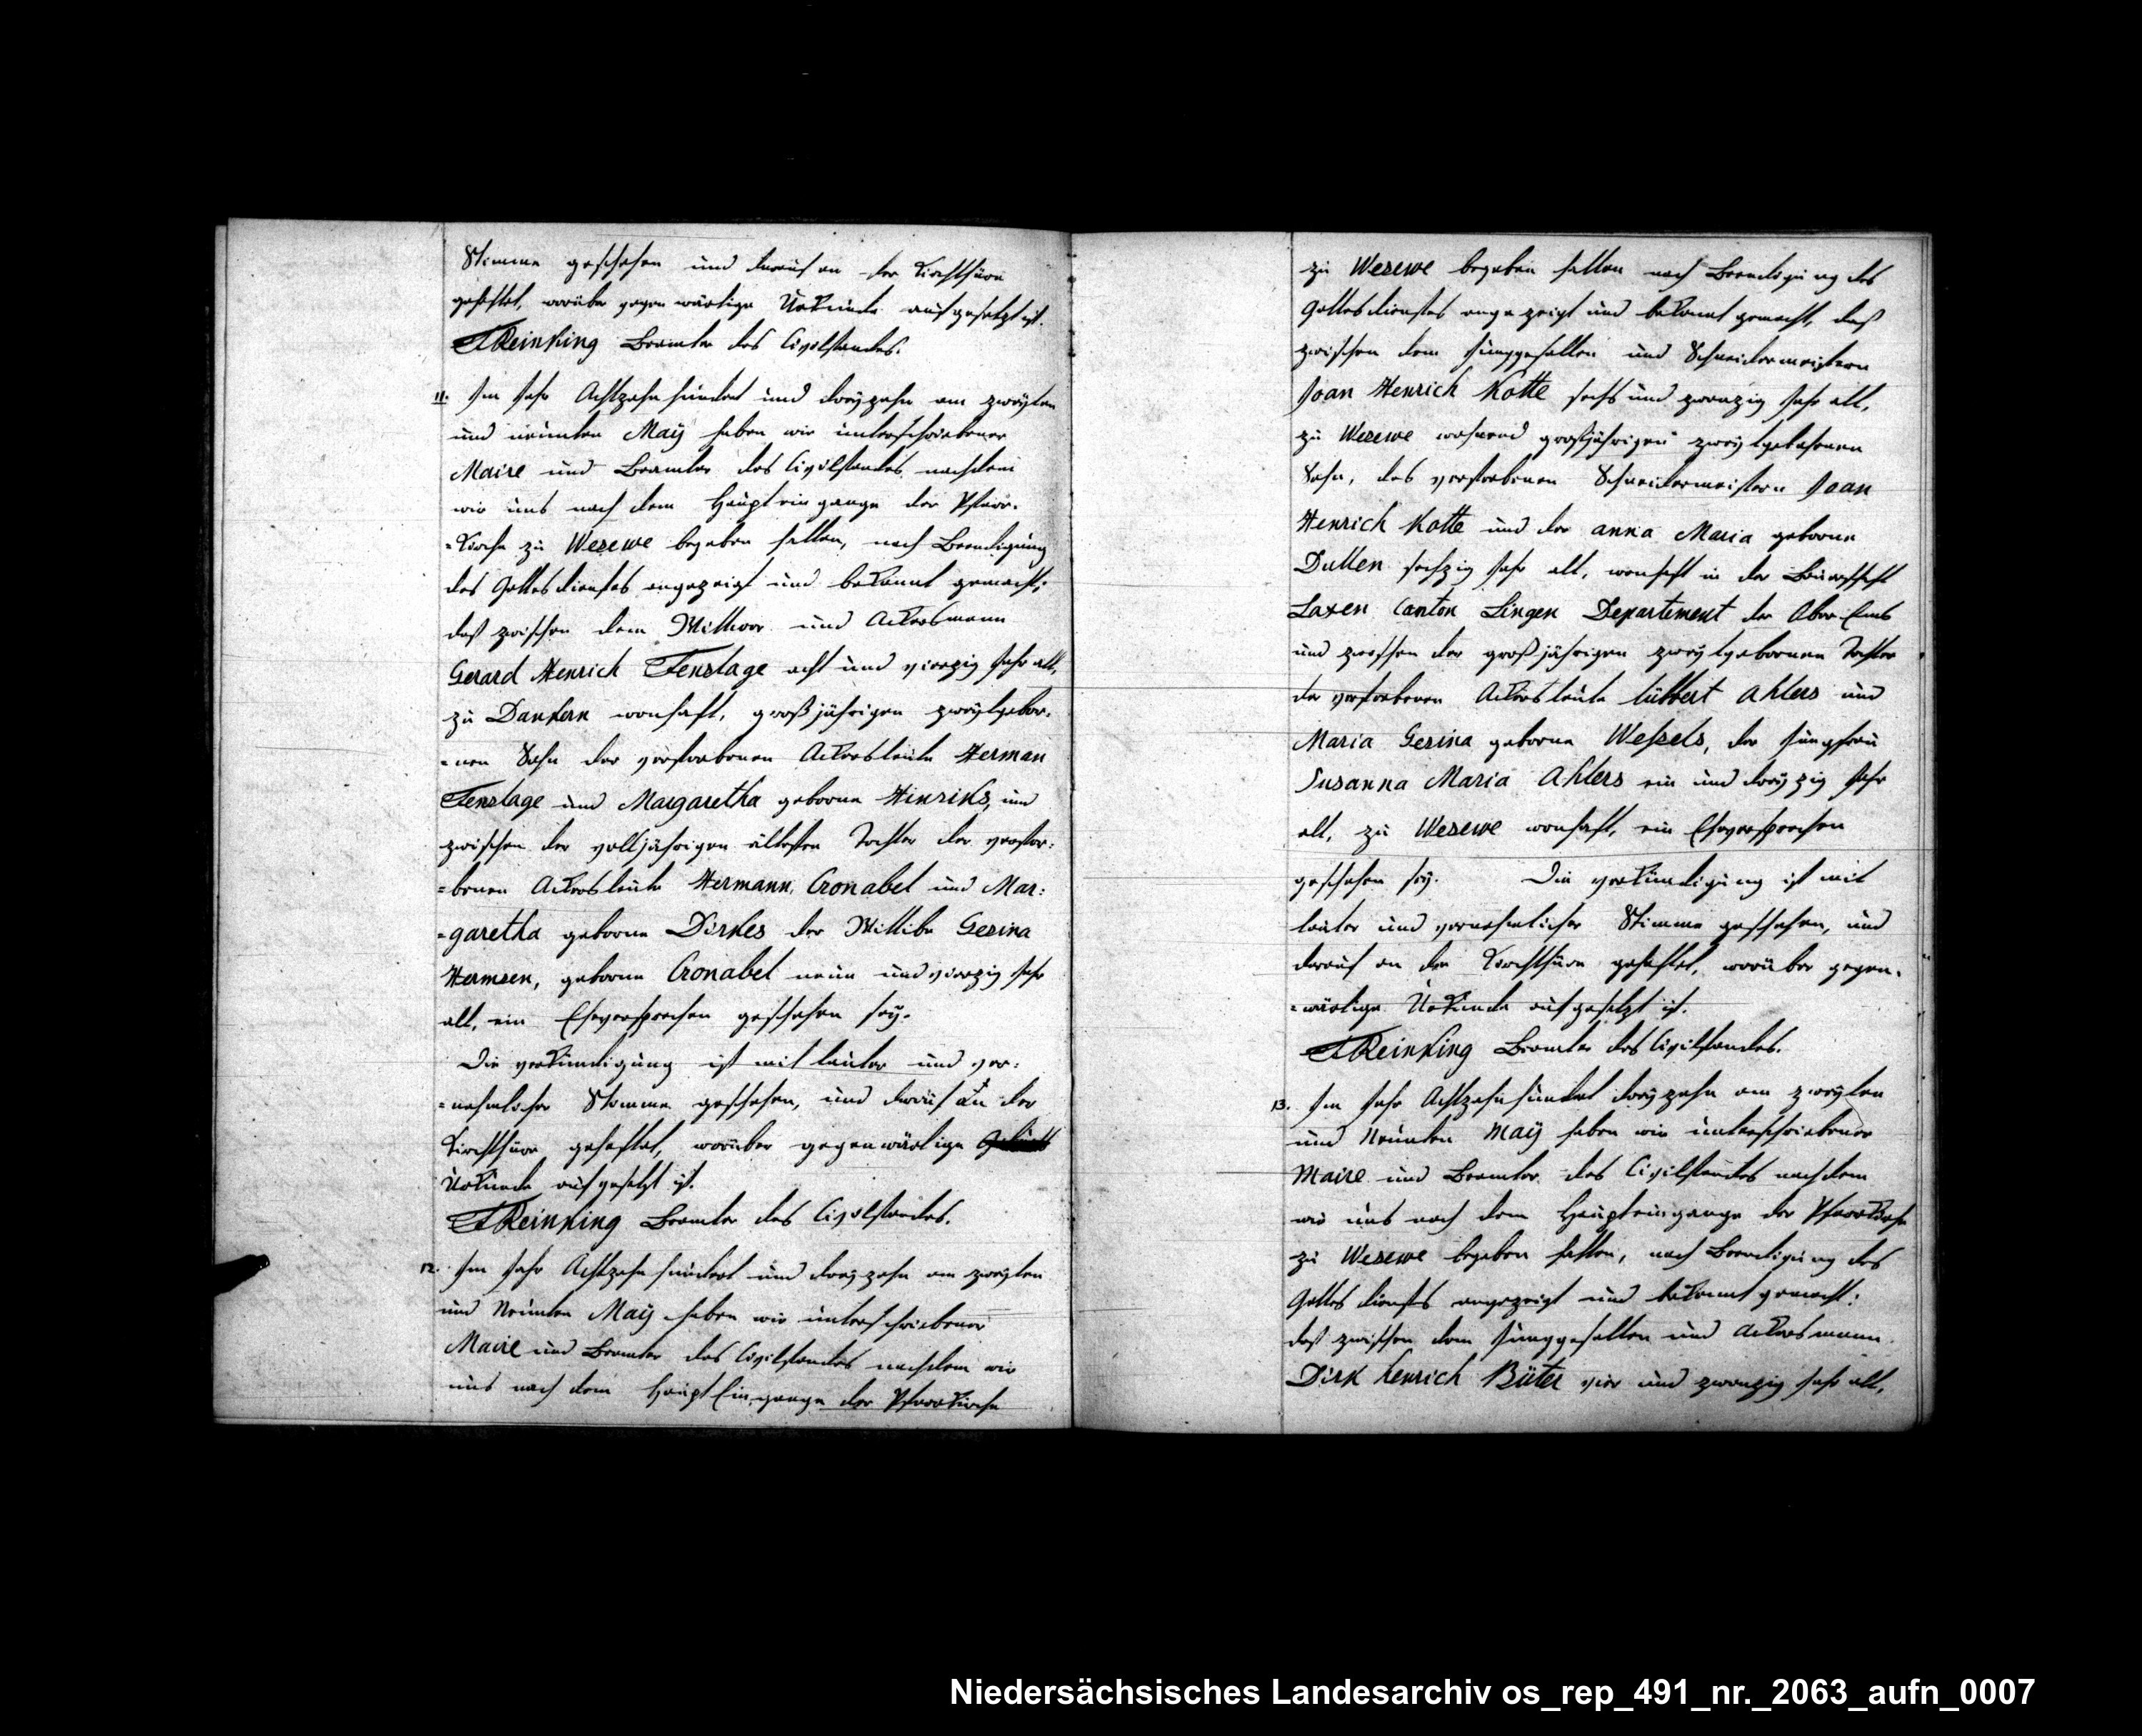 Stimme geschehen und darauf an der Kirchthüre
geheftet, worüber gegenwärtige Urkunde aufgesetzt ist.
Reinking Beamter des Civilstandes.
11. Im Jahr Achtzehnhundert und dreyzehn am zweyten
und neunten Maÿ haben wir unterschriebener
Maire und Beamter des Civilstandes nachdem
wir uns nach dem Haupteingange der Pfarr-
=Kirche zu Wesewe begeben hatten, nach Beendigung
des Gottesdienstes angezeigt und bekannt gemacht;
daß zwischen dem Wittwer und Ackersmann
Gerard Henrich Fenslage acht und vierzig Jahr alt,
zu Dankern wonhaft, großjährigen zweytgebor-
=nen Sohn der verstorbenen Ackersleute Herman
Fenslage und Margaretha geborne Hinriks, und
zwischen der volljährigen ältesten Tochter der verstor=
=benen Ackersleute Hermann Cronabel und Mar:
=garetha geborne Dirkes der Wittibe Gesina
Hermsen, geborne Cronabel neun und vierzig Jahr
alt, ein Eheversprechen geschehen seÿ.
Die verkündigung ist mit lauter und ver:
=nehmlicher Stimme geschehen, und darauf an der
Kirchthüre geheftet, worüber gegenwärtige
Urkunde aufgesetzt ist.
Reinking Beamter des Civilstandes.
12. Im Jahr Achtzehnhundert und dreyzehn am zweyten
und Neunten Maÿ haben wir unterschriebener
Maire und Beamter des Civilstandes nachdem wir
uns nach dem Haupt Eingange der Pfarrkirche
zu Wesewe begeben hatten nach Beendigung des
Gottesdienstes angezeigt und bekannt gemacht, daß
zwischen dem Junggesellen und Schneidermeistern
Joan Henrich Kotte sechs und zwanzig Jahr alt,
zu Wesewe wohnend großjährigen zweytgebohrnen
Sohn, des verstorbenen Schneidermeistern Joan
Henrich Kotte und der anna Maria geborne
Dullen sechzig Jahr alt, wonhaft in der Bauerschaft
Laxen Canton Lingen Departement der Ober Ems
und zwischen der großjährigen zweytgebornen Tochter
der verstorbenen Ackersleute lübbert Ahlers und
Maria Gesina geborne Weßels, der Jungfrau
Susanna Maria Ahlers ein und dreyzig Jahr
alt, zu Wesewe wonhaft, ein Eheversprechen
geschehen seÿ. Die verkündigung ist mit
lauter und vernehmlicher Stimme geschehen, und
darauf an der Kirchthüre geheftet, worüber gegen-
=wärtige Urkunde aufgesetzt ist.
Reinking Beamter des Civilstandes.
13. Im Jahr Achtzehnhundert dreyzehn am zweyten
und Neunten Maÿ haben wir unterschriebener
Maire und Beamter des Civilstandes nachdem
wir uns nach dem Haupteingange der Pfarrkirche
zu Wesewe begeben hatten, nach Beendigung des
Gottesdienstes angezeigt und bekannt gemacht:
daß zwischen dem Junggesellen und Ackersmann
Dirk henrich Büter vier und zwanzig Jahr alt,
Niedersächsisches Landesarchiv os_rep_491_nr._2063_aufn_0007